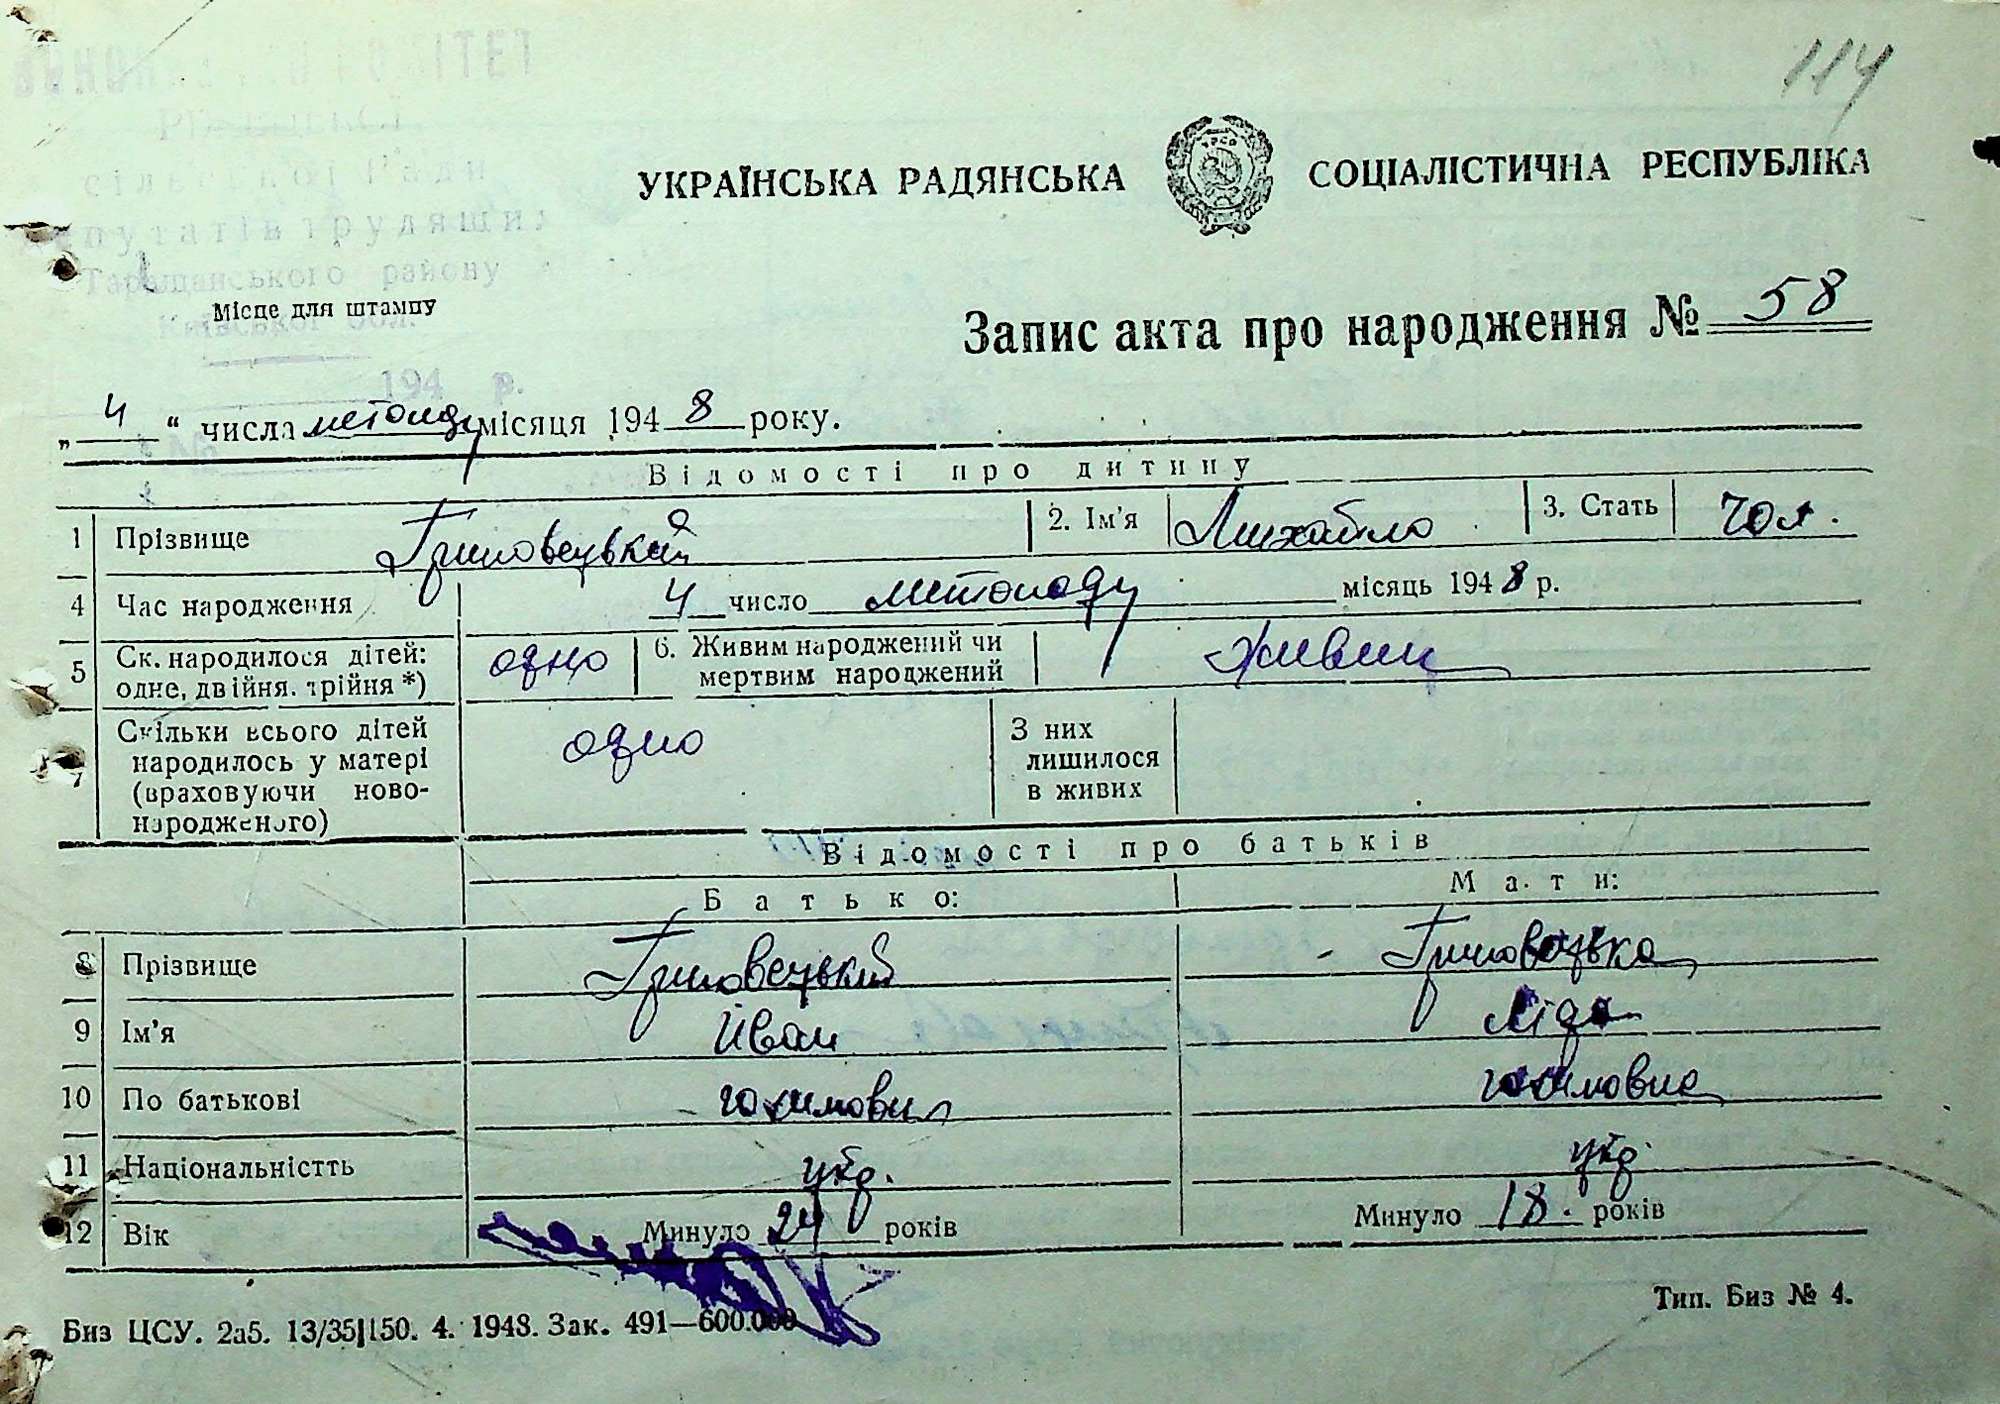 114
ВИКОНАВЧИЙ КОМІТЕТ
сільської Ради
депутатів трудящих
Таращанського району
Київської обл.
194 р.
№
УКРАЇНСЬКА РАДЯНСЬКА СОЦІАЛІСТИЧНА РЕСПУБЛІКА
Місце для штампу
Запис акта про народження № 58
„ 4 “ числа листопаду місяця 1948 року.
Відомості про дитину
1 Прізвище Гриновецький 2. Ім’я Михайло 3. Стать чол.
4 Час народження 4 число листопаду місяць 1948 р.
5 Ск. народилося дітей: одне, двійня, трійня *) одно 6. Живим народжений чи мертвим народжений живим
7 Скільки всього дітей народилось у матері (враховуючи ново-народженого) одно З них лишилося в живих
Відомості про батьків
Батько: Мати:
8 Прізвище Гриновецький Гриновецька
9 Ім’я Йван Ліда
10 По батькові Юхимович Юхимовна
11 Національністть укр. укр.
12 Вік Минуло 24 років Минуло 18. років
Биз ЦСУ. 2а5. 13/35|150. 4. 1948. Зак. 491—600.000
Тип. Биз № 4.